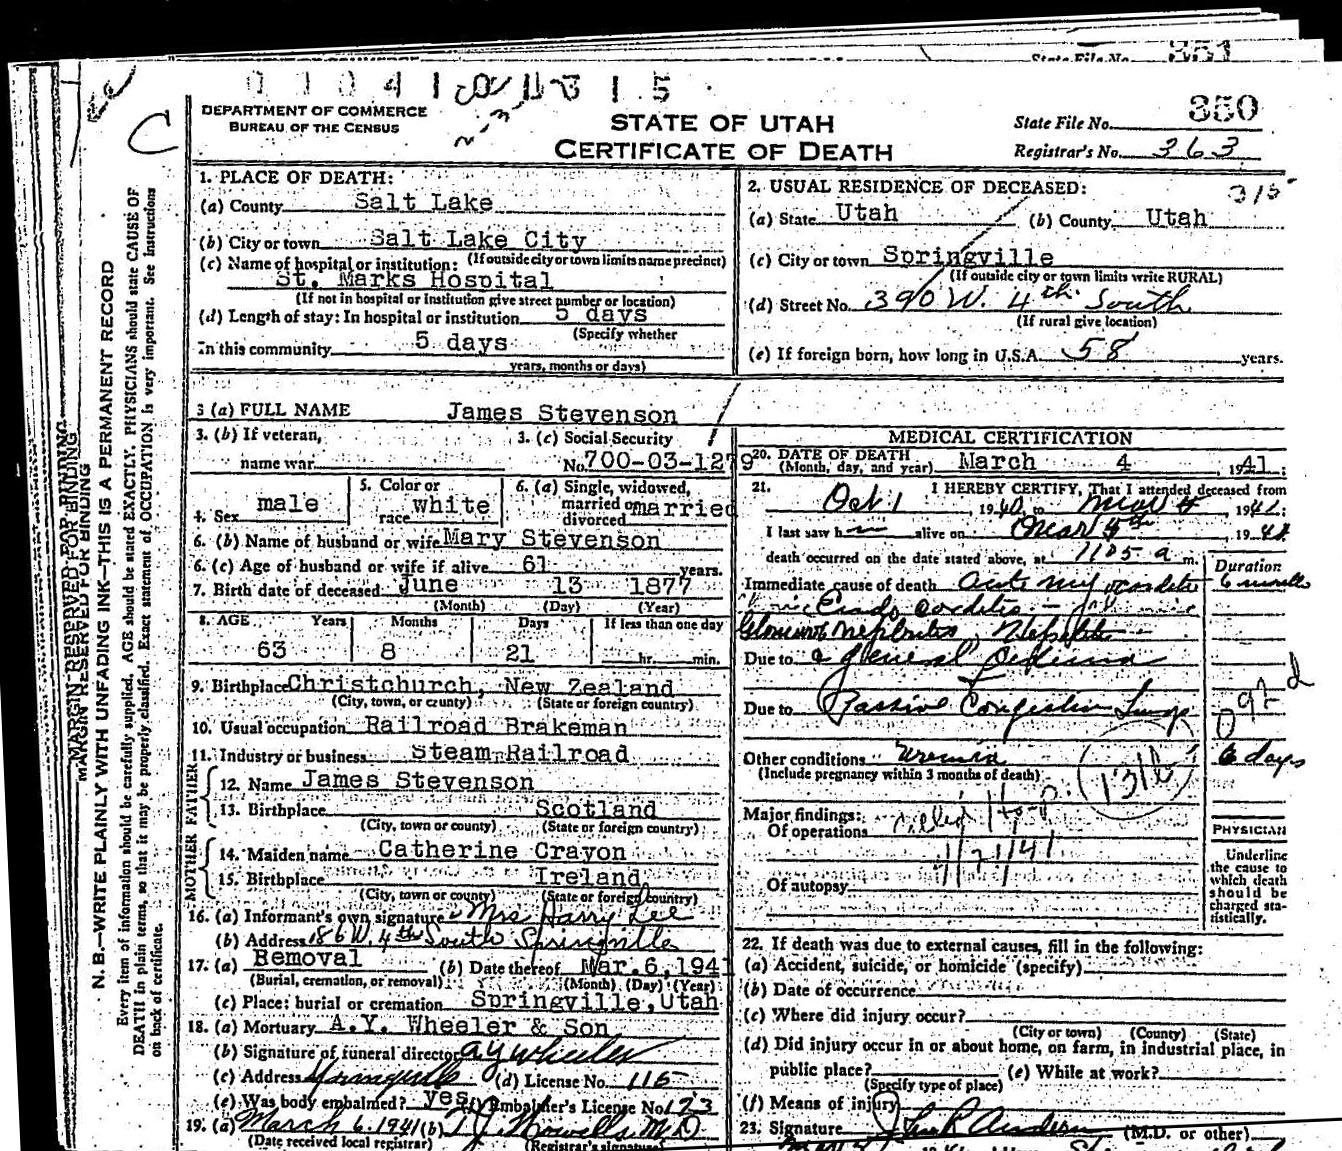 351
State File No.
DEPARTMENT OF COMMERCE
BUREAU OF THE CENSUS
STATE OF UTAH
CERTIFICATE OF DEATH
350
State File No.
Registrar's No. 363
C
MARGIN RESERVED FOR BINDING
N. B.—WRITE PLAINLY WITH UNFADING INK—THIS IS A PERMANENT RECORD
Every item of information should be carefully supplied. AGE should be stated EXACTLY. PHYSICIANS should state CAUSE OF
DEATH in plain terms, so that it may be properly classified. Exact statement of OCCUPATION is very important. See instructions
on back of certificate.
1. PLACE OF DEATH:
(a) County Salt Lake
(b) City or town Salt Lake City
(If outside city or town limits name precinct)
(c) Name of hospital or institution:
St. Marks Hospital
(If not in hospital or institution give street number or location)
(d) Length of stay: In hospital or institution 5 days
(Specify whether
In this community 5 days
years, months or days)
2. USUAL RESIDENCE OF DECEASED: 315
(a) State Utah (b) County Utah
(c) City or town Springville
(If outside city or town limits write RURAL)
(d) Street No. 390 W. 4th South
(If rural give location)
(e) If foreign born, how long in U.S.A. 58 years.
3 (a) FULL NAME James Stevenson
3. (b) If veteran, name war
3. (c) Social Security No. 700-03-1279
4. Sex male
5. Color or race white
6. (a) Single, widowed, married or divorced married
6. (b) Name of husband or wife Mary Stevenson
6. (c) Age of husband or wife if alive 61 years.
7. Birth date of deceased June 13 1877
(Month) (Day) (Year)
8. AGE Years Months Days If less than one day
63 8 21 hr. min.
9. Birthplace Christchurch, New Zealand
(City, town, or county) (State or foreign country)
10. Usual occupation Railroad Brakeman
11. Industry or business Steam Railroad
FATHER
12. Name James Stevenson
13. Birthplace Scotland
(City, town or county) (State or foreign country)
MOTHER
14. Maiden name Catherine Crayon
15. Birthplace Ireland
(City, town or county) (State or foreign country)
16. (a) Informant's own signature Mrs Harry Lee
(b) Address 186 W. 4th South Springville
17. (a) Removal (b) Date thereof Mar. 6, 1941
(Burial, cremation, or removal) (Month) (Day) (Year)
(c) Place: burial or cremation Springville, Utah
18. (a) Mortuary A.Y. Wheeler & Son
(b) Signature of funeral director A Y Wheeler
(c) Address Springville (d) License No. 115
(e) Was body embalmed? yes (f) Embalmer's License No. 173
19. (a) March 6, 1941 (b) T. J. Howells M.D.
(Date received local registrar) (Registrar's signature)
MEDICAL CERTIFICATION
20. DATE OF DEATH
(Month, day, and year) March 4, 1941
21. I HEREBY CERTIFY, That I attended deceased from
Oct 1 1940, to Mar 4, 1941;
I last saw h im alive on Mar 4th 1941
death occurred on the date stated above, at 1105 a m.
Duration
Immediate cause of death Acute myocarditis 6 months
Endocarditis
Nephritis
Due to general
Due to Passive Congestion Lungs
Other conditions Uremia 6 days
(Include pregnancy within 3 months of death)
(131b)
Major findings:
Of operations
4/21/41
Of autopsy
PHYSICIAN
Underline
the cause to
which death
should be
charged sta-
tistically.
22. If death was due to external causes, fill in the following:
(a) Accident, suicide, or homicide (specify)
(b) Date of occurrence
(c) Where did injury occur?
(City or town) (County) (State)
(d) Did injury occur in or about home, on farm, in industrial place, in
public place? (e) While at work?
(Specify type of place)
(f) Means of injury
23. Signature (M.D. or other)